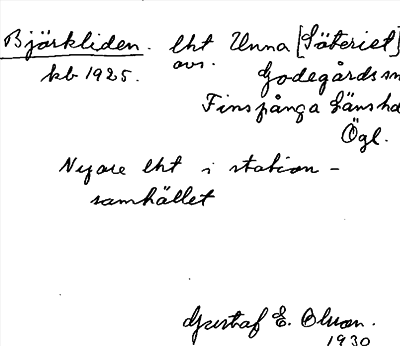 Björkliden. lht Unna [Säteriet]
kb 1925. avs. Godegårds sn
Finspånga länshd
Ögl.
Nyare lht i station-
samhället
Gustaf E. Olson.
1930